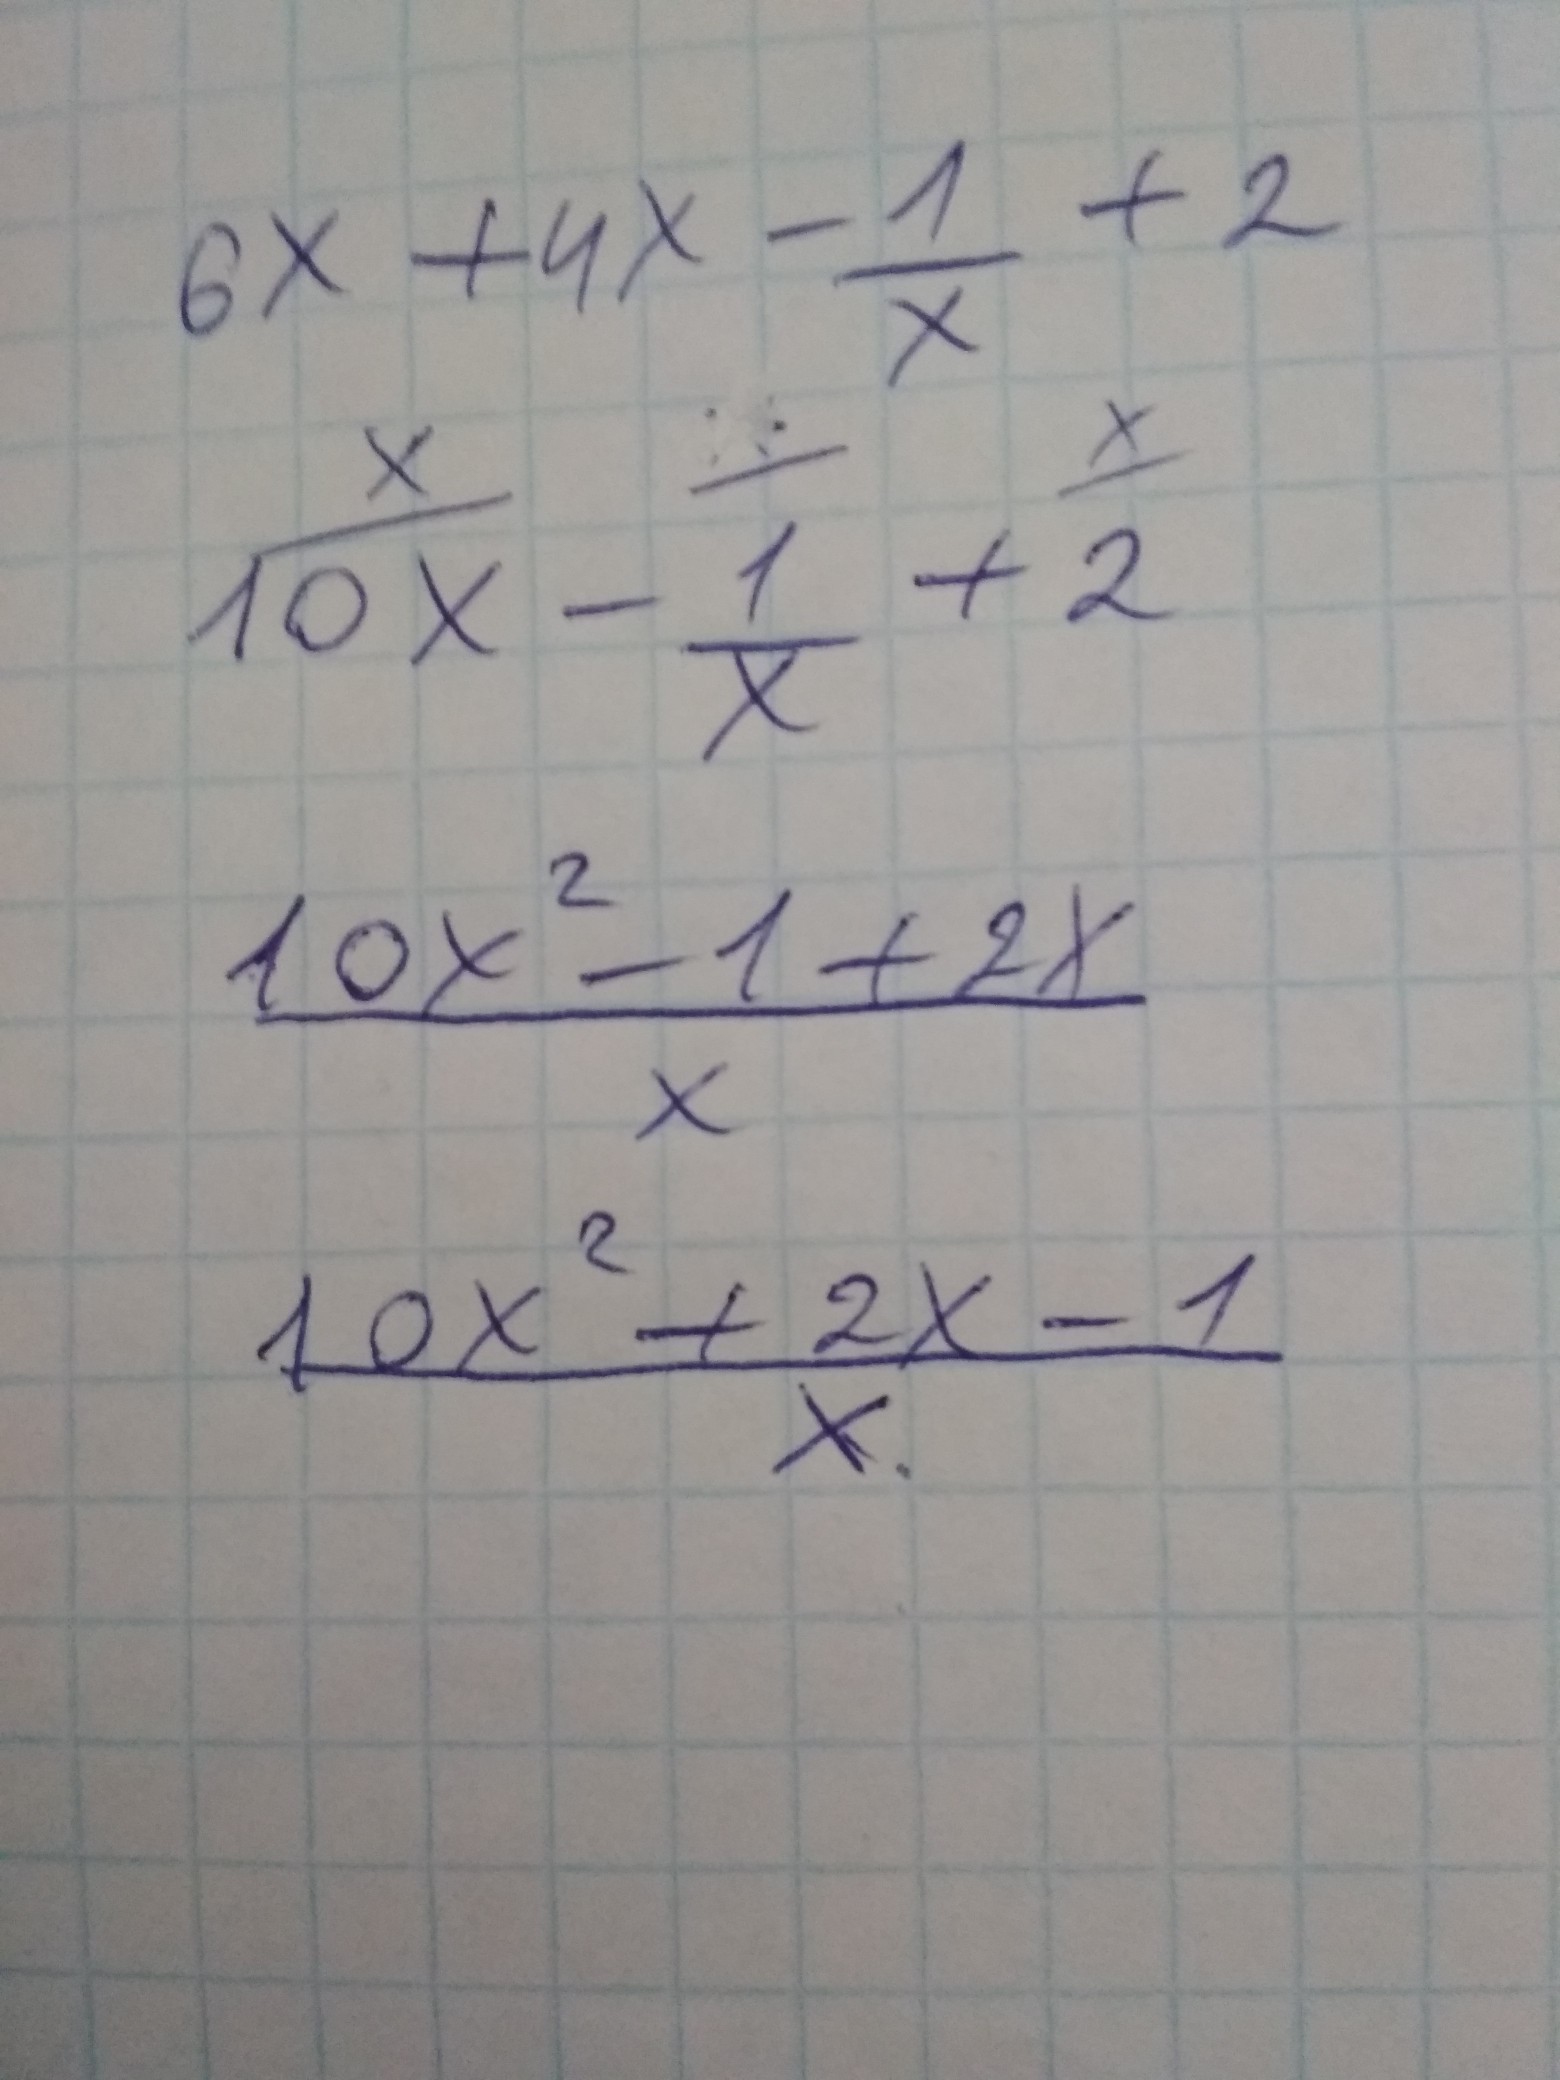 6x + 4x - 1/x + 2
x x
10x - 1/x + 2
10x² - 1 + 2x
x
10x² + 2x - 1
x.